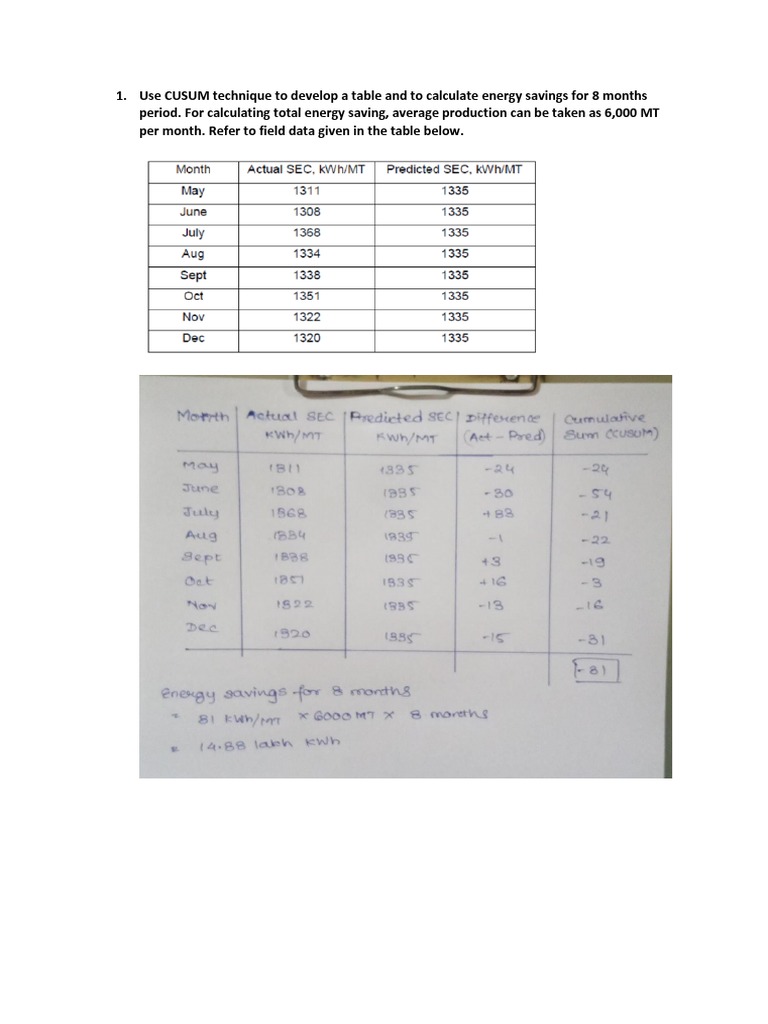 1. Use CUSUM technique to develop a table and to calculate energy savings for 8 months
period. For calculating total energy saving, average production can be taken as 6,000 MT
per month. Refer to field data given in the table below.
Month Actual SEC, kWh/MT Predicted SEC, kWh/MT
May 1311 1335
June 1308 1335
July 1368 1335
Aug 1334 1335
Sept 1338 1335
Oct 1351 1335
Nov 1322 1335
Dec 1320 1335
Month Actual SEC Predicted SEC Difference Cumulative
KWh/MT KWh/MT (Act - Pred) Sum (CUSUM)
May 1311 1335 -24 -24
June 1308 1335 -30 -54
July 1368 1335 +33 -21
Aug 1334 1335 -1 -22
Sept 1338 1335 +3 -19
Oct 1351 1335 +16 -3
Nov 1322 1335 -13 -16
Dec 1320 1335 -15 -31
-31
Energy savings for 8 months
= 31 KWh/MT × 6000 MT × 8 months
= 14.88 lakh KWh